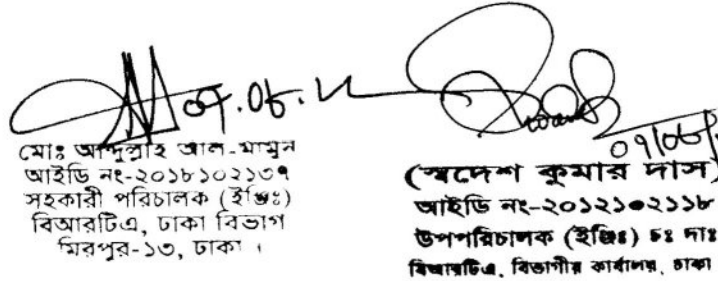 ০৭.০৮.২
মোঃ আব্দুল্লাহ আল-মামুন
আইডি নং-২০১৮১০২১৩৭
সহকারী পরিচালক (ইঞ্জিঃ)
বিআরটিএ, ঢাকা বিভাগ
মিরপুর-১৩, ঢাকা ।
(স্বদেশ কুমার দাস)
আইডি নং-২০১২১০২১১৮
উপপরিচালক (ইঞ্জিঃ) চঃ দাঃ
বিআরটিএ, বিভাগীয় কার্যালয়, ঢাকা